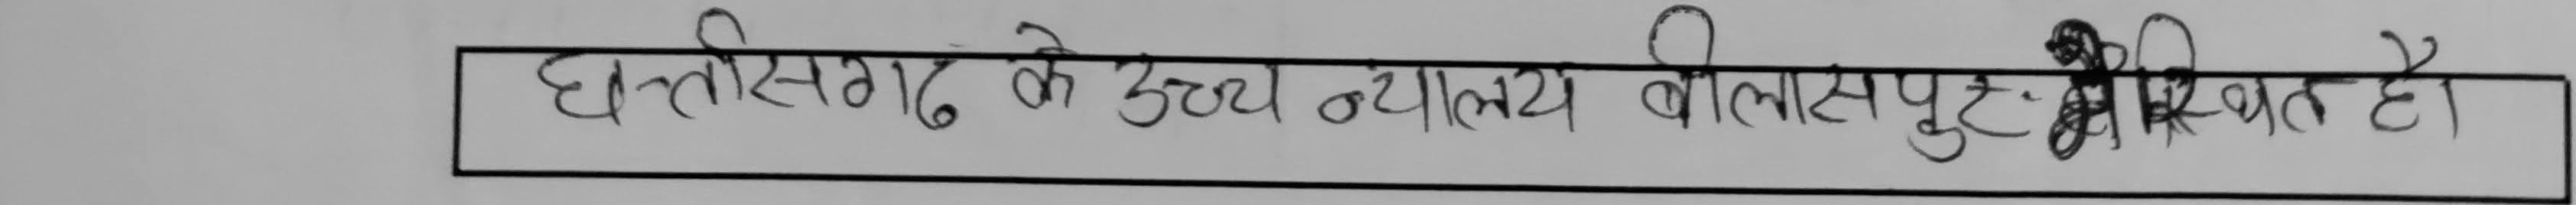 छत्तीसगढ के उच्च न्यालय बीलासपुर में स्थित है।